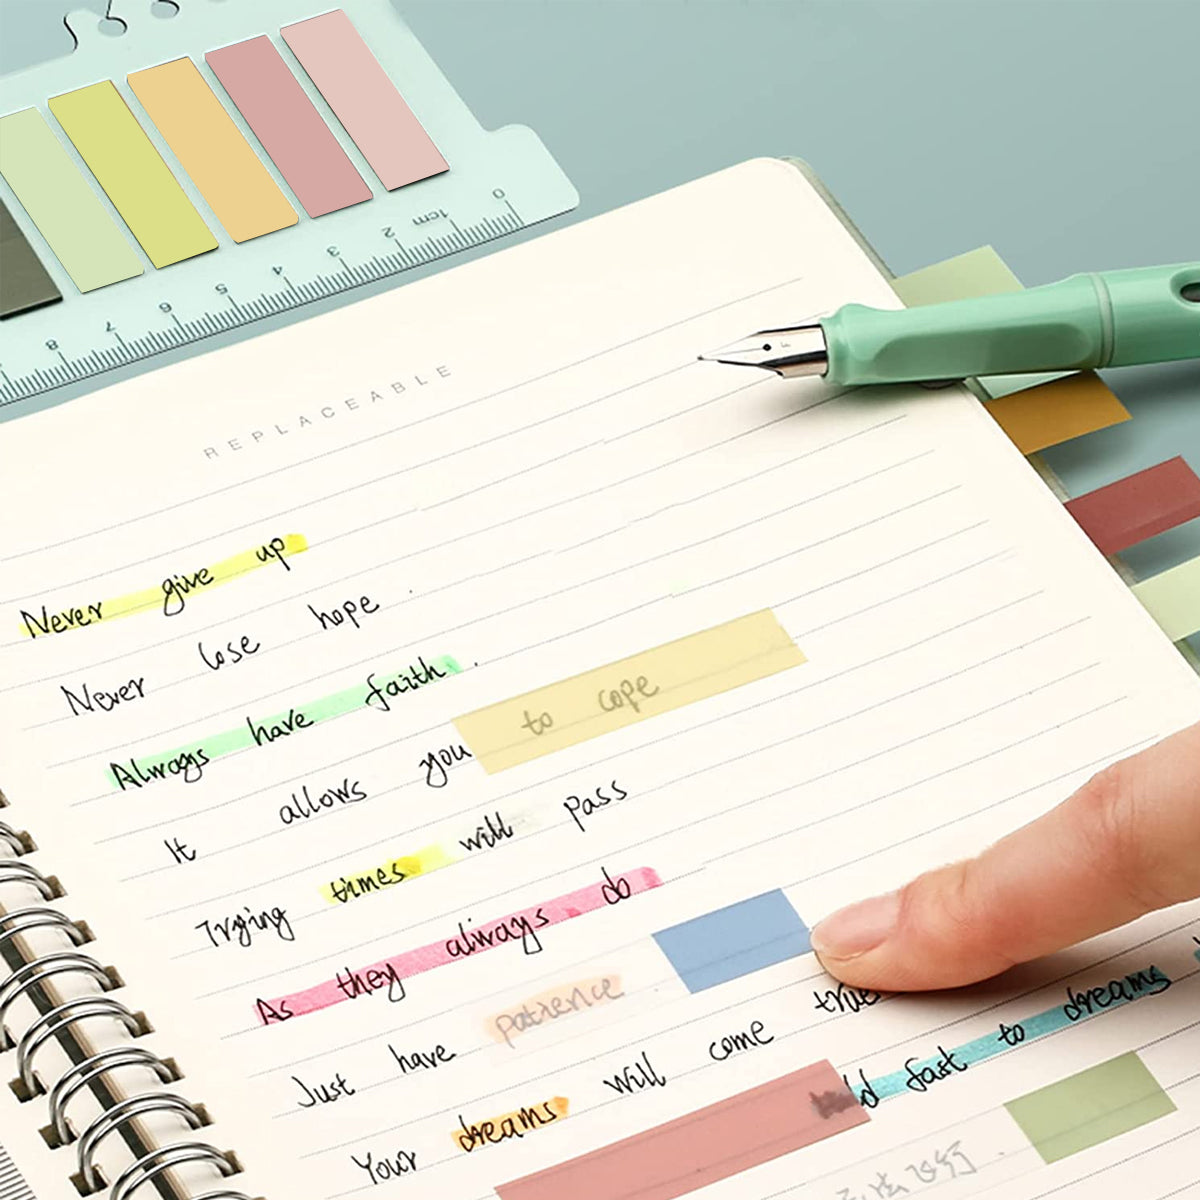 0 1cm 2 3 4 5 6 7 8
REPLACEABLE
Never give up
Never lose hope.
Always have faith.
It allows you to cope
Trying times will pass
As they always do
Just have patience.
Your dreams will come true
fast to dreams